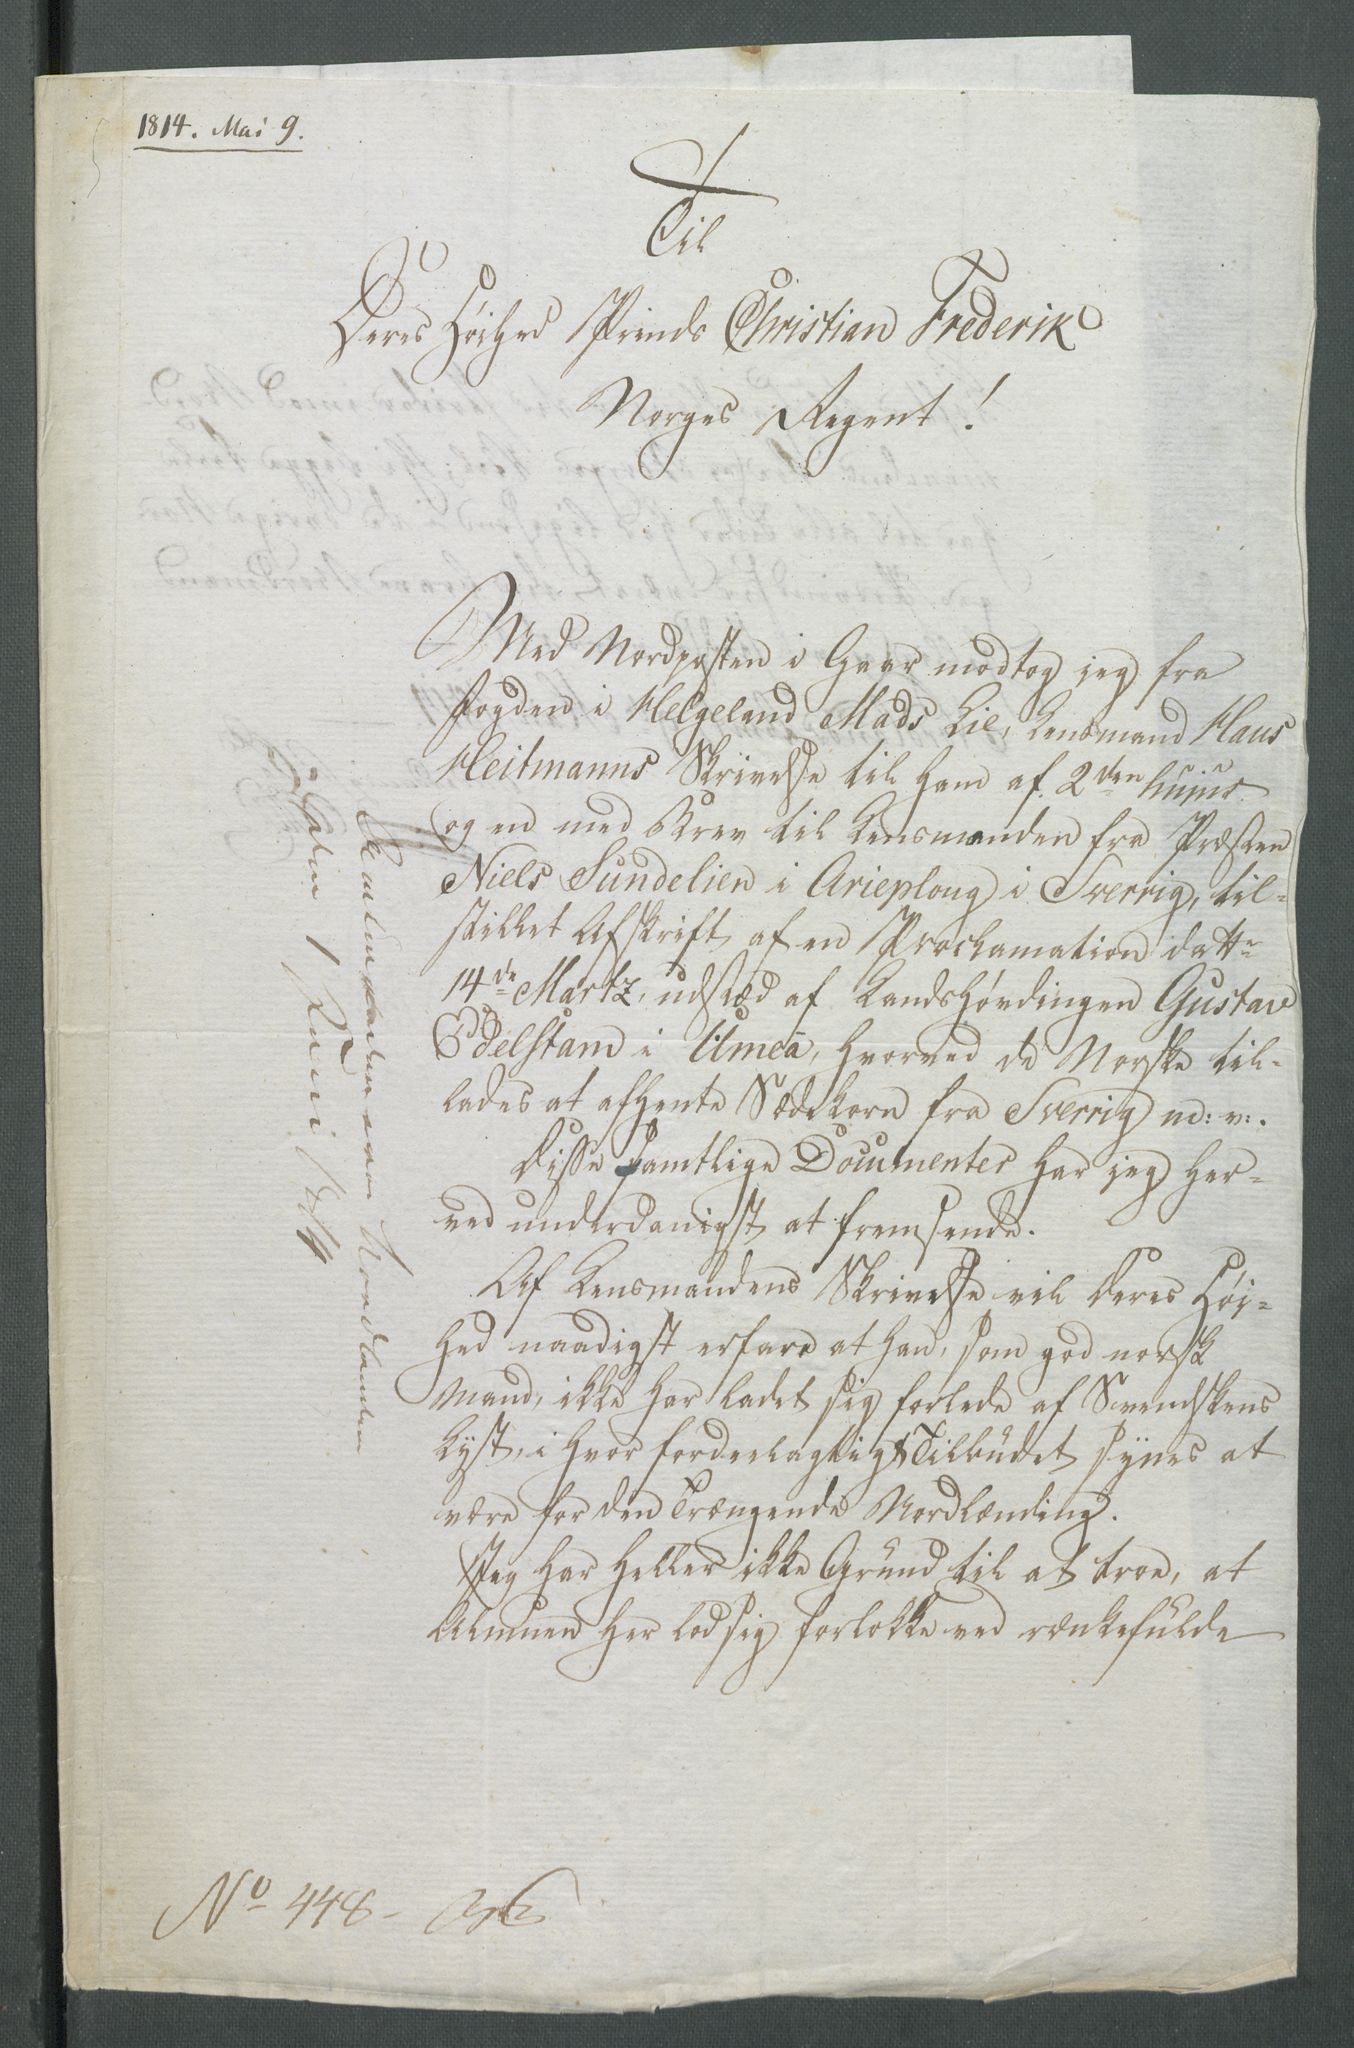 1814. Mai 9.
Til
Deres Høihed Prinds Christian Frederik
Norges Regent!
Med Nordposten i Gaar modtog jeg fra
Fogden i Helgeland Mads Lie, Lensmand Hans
Heitmanns Skrivelse til ham af 2den hujus
og en med Brev til Lensmanden fra Præsten
Niels Sundelien i Arieploug i Sverrig, til-
stillet Afskrift af en Proclamation datt.
14de Martz, udstæd af Landshøvdingen Gustav
Edelstam i Umeå, hvorved de Norske til-
lades at afhente Sædekorn fra Sverrig m: v:.
Disse samtlige Documenter har jeg her-
ved underdanigst at fremsende.
Af Lensmandens Skrivelse vil Deres Høi-
hed naadigst erfare at han, som god norsk
Mand, ikke har ladet sig forlede af Svendskens
Lyst, i hvor fordeelagtigt Tilbudet synes at
være for den Trængende Nordlænding.
Jeg har heller ikke Grund til at troe, at
Almuen her lod sig forlokke ved rænkefulde
No 448-